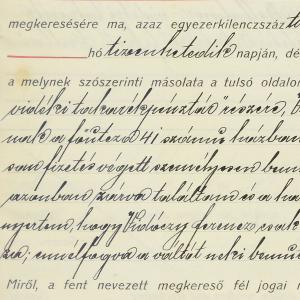 megkeresésére ma, azaz egyezerkilenczszáz
hó tizenhetedik napján, dé
a melynek szószerinti másolata a tulsó oldalon
vidéki takarékpénztár részére,
nak a főutcza 41 számú házban
san fizetés végett személyesen
azonban zárva találtam és a
nyertem, hogy Vidóczy ferencz csak
za; ennélfogva a váltót neki
Miről, a fent nevezett megkereső fél jogai